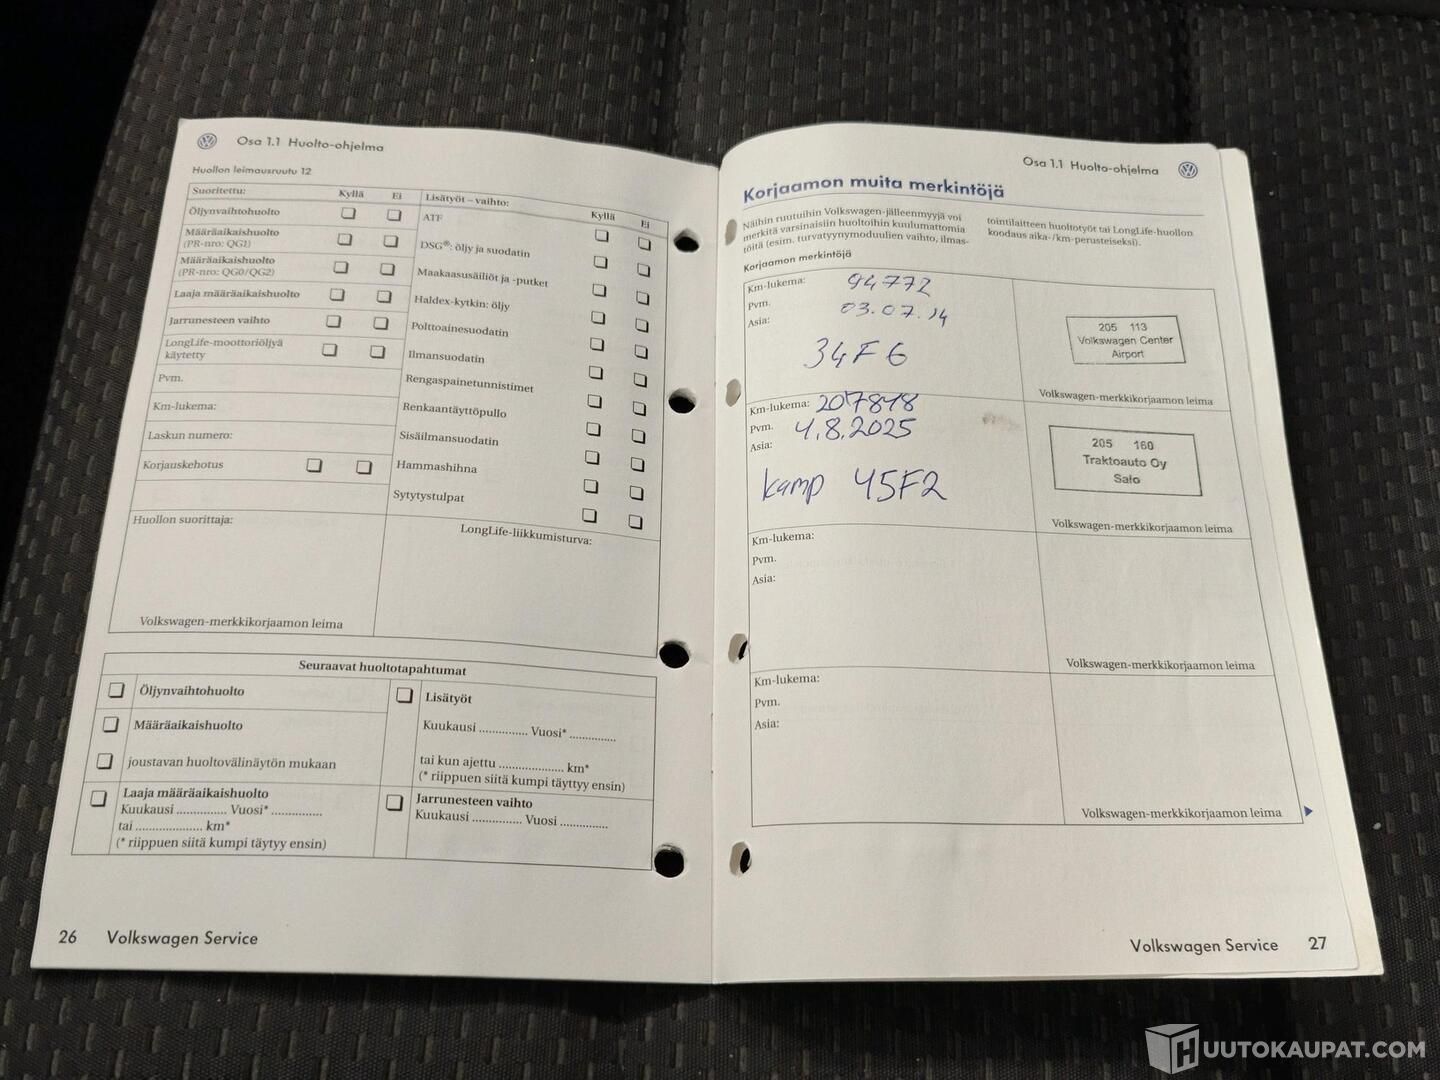 Osa 1.1 Huolto-ohjelma
Huollon leimausruutu 12
Suoritettu: Kyllä Ei
Öljynvaihtohuolto
Määräaikaishuolto
(PR-nro: QG1)
Määräaikaishuolto
(PR-nro: QG0/QG2)
Laaja määräaikaishuolto
Jarrunesteen vaihto
LongLife-moottoriöljyä
käytetty
Pvm.
Km-lukema:
Laskun numero:
Korjauskehotus
Huollon suorittaja:
Volkswagen-merkkikorjaamon leima
Lisätyöt – vaihto: Kyllä Ei
ATF
DSG®: öljy ja suodatin
Maakaasusäiliöt ja -putket
Haldex-kytkin: öljy
Polttoainesuodatin
Ilmansuodatin
Rengaspainetunnistimet
Renkaantäyttöpullo
Sisäilmansuodatin
Hammashihna
Sytytystulpat
LongLife-liikkumisturva:
Seuraavat huoltotapahtumat
Öljynvaihtohuolto
Määräaikaishuolto
joustavan huoltovälinäytön mukaan
Laaja määräaikaishuolto
Kuukausi .............. Vuosi* ..............
tai .................... km*
(* riippuen siitä kumpi täytyy ensin)
Lisätyöt
Kuukausi .............. Vuosi* ..............
tai kun ajettu ................... km*
(* riippuen siitä kumpi täyttyy ensin)
Jarrunesteen vaihto
Kuukausi .............. Vuosi ..............
26 Volkswagen Service
Osa 1.1 Huolto-ohjelma
Korjaamon muita merkintöjä
Näihin ruutuihin Volkswagen-jälleenmyyjä voi
merkitä varsinaisiin huoltoihin kuulumattomia
töitä (esim. turvatyynymoduulien vaihto, ilmas-
tointilaitteen huoltotyöt tai LongLife-huollon
koodaus aika-/km-perusteiseksi).
Korjaamon merkintöjä
Km-lukema: 94772
Pvm. 03.07.14
Asia:
34F6
205 113
Volkswagen Center
Airport
Volkswagen-merkkikorjaamon leima
Km-lukema: 207818
Pvm. 4.8.2025
Asia:
kamp 45F2
205 160
Traktoauto Oy
Salo
Volkswagen-merkkikorjaamon leima
Km-lukema:
Pvm.
Asia:
Volkswagen-merkkikorjaamon leima
Km-lukema:
Pvm.
Asia:
Volkswagen-merkkikorjaamon leima
Volkswagen Service 27
HUUTOKAUPAT.COM